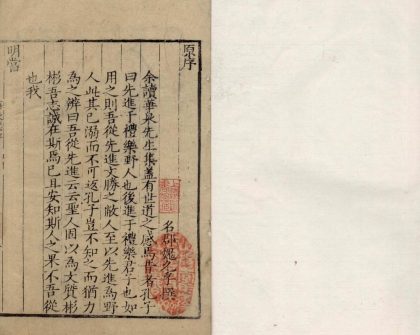 原序
名郡魏允孚撰
余讀華泉先生集蓋有世道之感焉昔者孔子
曰先進于禮樂野人也後進于禮樂君子也如
用之則吾從先進文勝之敝人至以先進為野
人此其已溺而不可返孔子豈不知之而猶力
為之辨曰吾從先進云云聖人固以為文質彬
彬吾志識在斯焉已且安知斯人之果不吾從
也我
明當